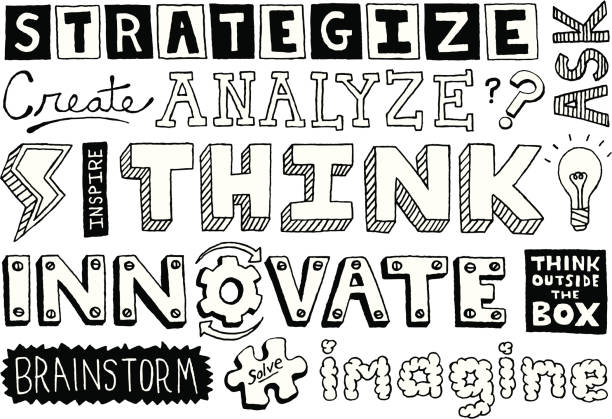 STRATEGIZE
ASK
Create
ANALYZE??
INSPIRE
THINK
INNOVATE
THINK
OUTSIDE
THE
BOX
BRAINSTORM
Solve
imagine